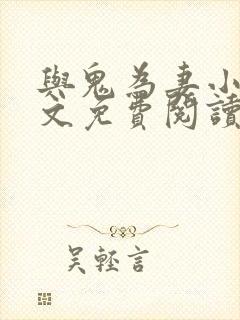 與鬼為妻小
文免費閱讀
吳輕言